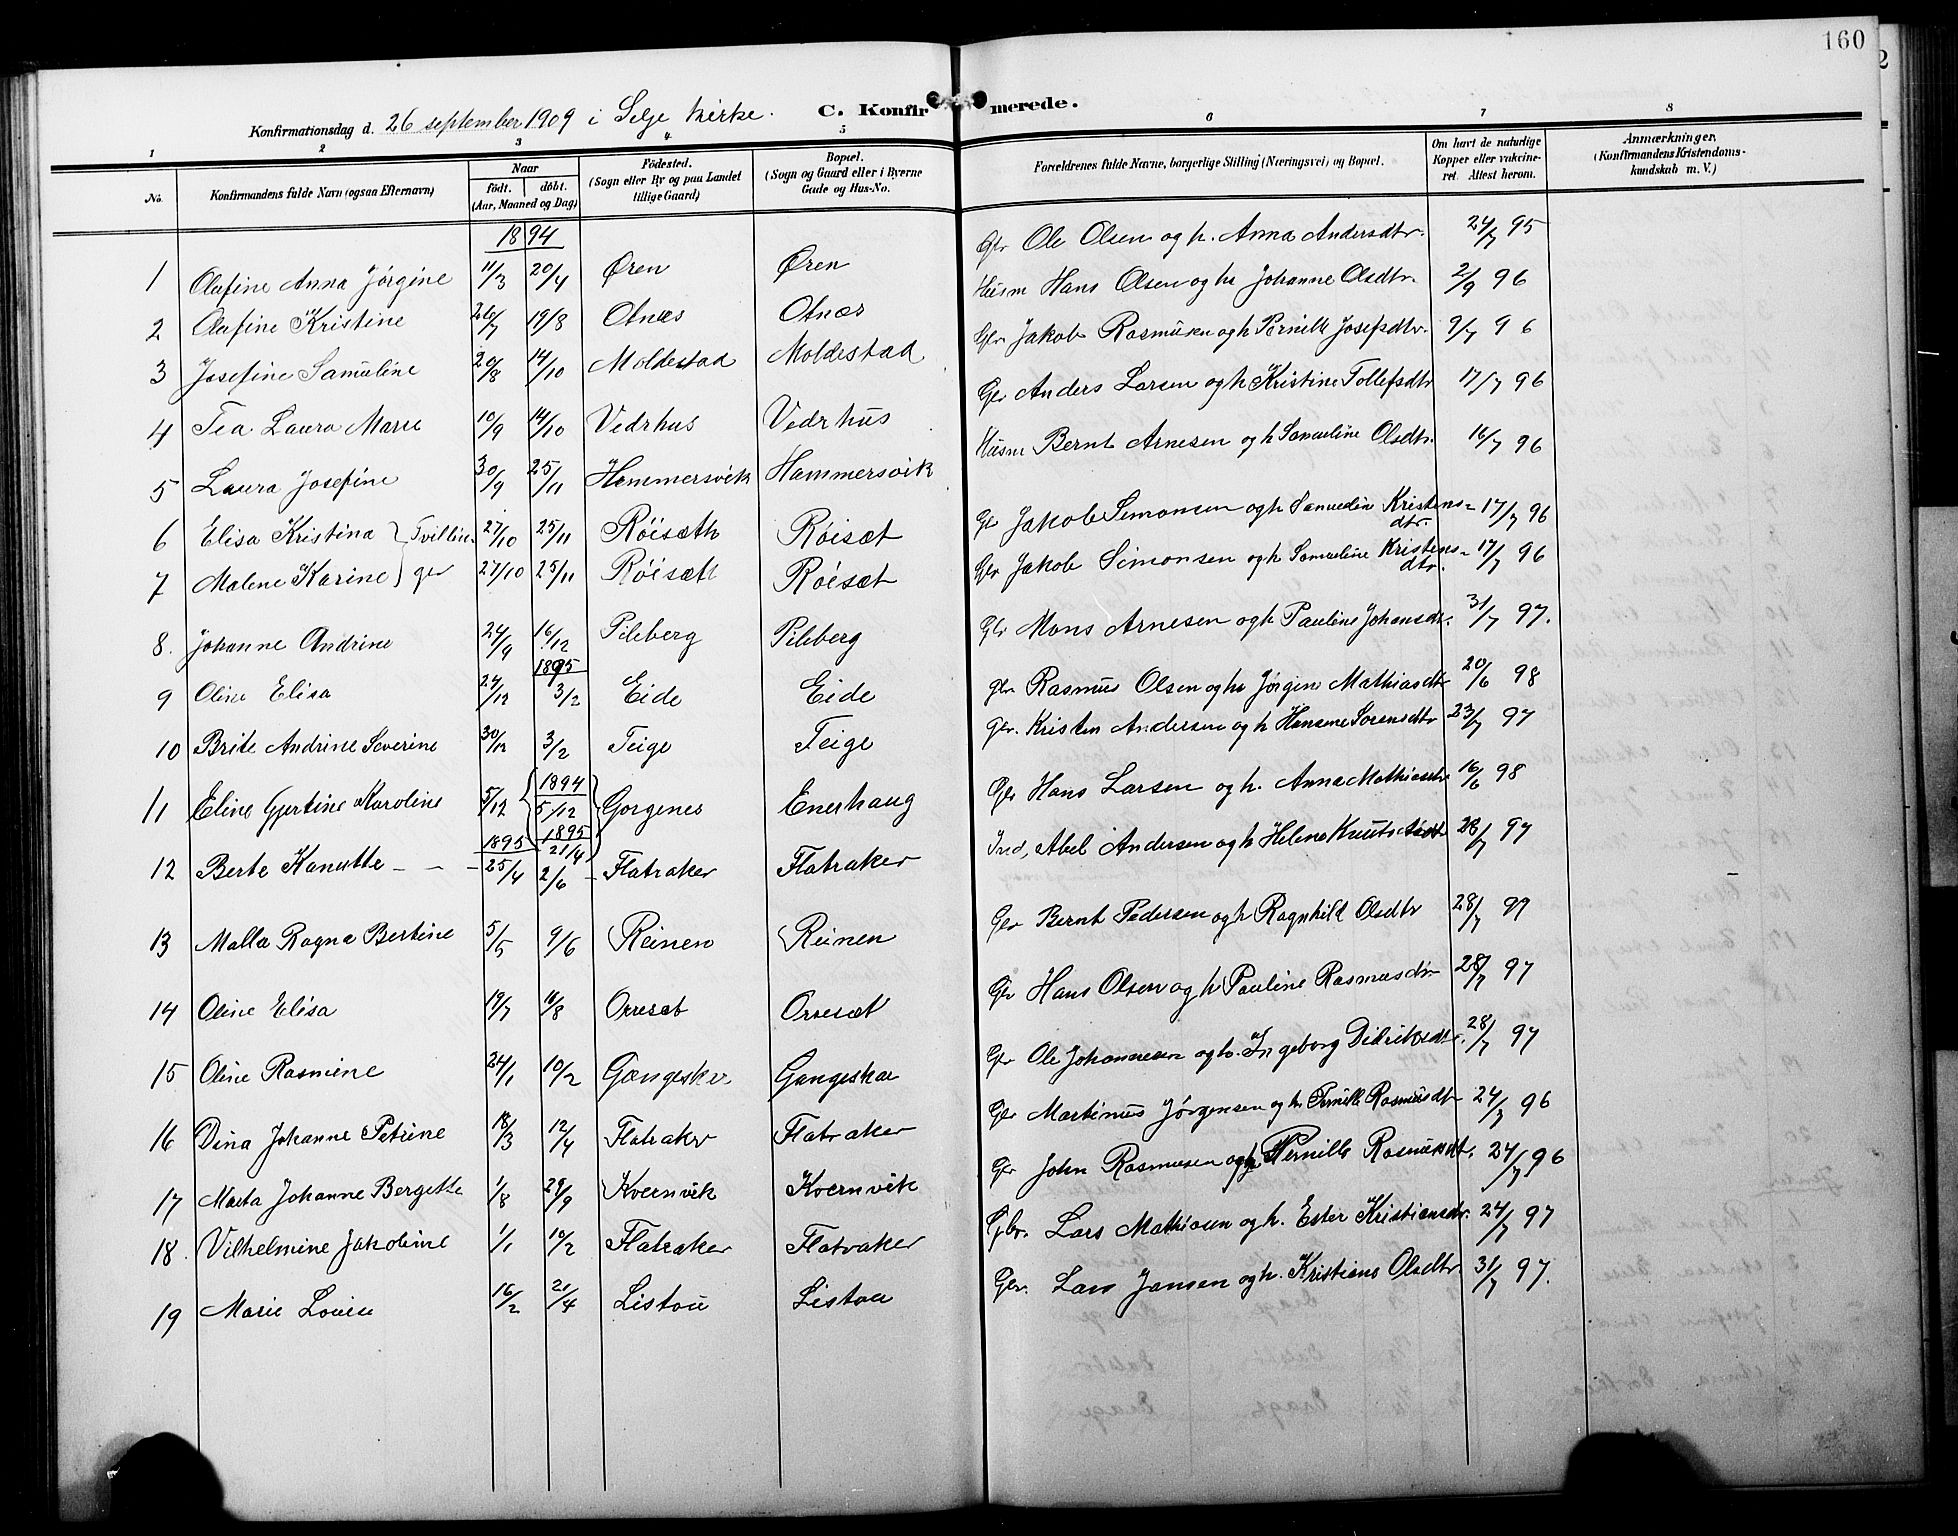 160
Konfirmationsdag d. 26 september 1909 i Selje kirke. C. Konfirmerede.
1 2 3 4 5 6 7 8
No. Konfirmandens fulde Navn (ogsaa Efternavn) Naar født. døbt. (Aar, Maaned og Dag) Fødested. (Sogn eller By og paa Landet tillige Gaard) Bopæl. (Sogn og Gaard eller i Byerne Gade og Hus-No. Forældrenes fulde Navne, borgerlige Stilling (Næringsvei) og Bopæl. Om havt de naturlige Kopper eller vakcineret. Attest herom. Anmærkninger. (Konfirmandens Kristendomskundskab m. V.)
1894
1 Olafine Anna Jørgine 11/3 20/4 Øren Øren Gbr Ole Olsen og h. Anna Andersdtr. 24/7 95
2 Olafine Kristine 26/7 19/8 Otnæs Otnæs Husm Hans Olsen og h Johanne Olsdtr. 2/9 96
3 Josefine Samuline 20/8 14/10 Moldestad Moldestad Gbr Jakob Rasmusen og h Pernille Josefsdtr. 9/7 96
4 Tea Laura Marie 10/9 14/10 Vedrhus Vedrhus Gbr Anders Larsen og h Kristine Tollefsdtr 17/7 96
5 Laura Josefine 30/9 25/11 Hammersvik Hammersvik Husm Bernt Arnesen og h Samueline Olsdtr. 16/7 96
6 Elisa Kristina } Tvillin- 27/10 25/11 Røisæth Røisæt Gbr Jakob Simonsen og h Samuelin Kristensdtr. 17/7 96
7 Malene Karine } ger 27/10 25/11 Røisætt Røisæt Gbr Jakob Simonsen og h Samueline Kristensdtr. 17/7 96
8. Johanne Andrine 24/9 16/12 Pileberg Pileberg Gbr Mons Arnesen og h Pauline Johansdtr. 31/7 97.
1895
9 Oline Elisa 24/12 3/2 Eide Eide gbr Rasmus Olsen og h Jørgin Mathiasdtr 20/6 98
10 Brite Andrine Severine 30/12 3/2 Teige Teige Gbr. Kristen Andersen og h Hansine Sorensdtr 23/7 97
11 Eline Gjertine Karoline 5/12 { 1894 5/12 1895 21/4 } Gorgenes Enerhaug Gbr Hans Larsen og h. Anna Mathiasdtr 16/6 98
1895
12 Berte Kanutte - - - 25/4 2/6 - Flatraker Flatraker Ind, Abel Andersen og h Helene 28/7 97
13 Malla Ragna Bertine 5/5 9/6 Reinen Reinen Gbr Bernt Pedersen og h Ragnhild Olsdtr 28/7 99
14 Oline Elisa 19/7 16/8 Orresæt Orresæt Gbr Hans Olsen og h Pauline Rasmusdtr 28/7 97
15 Oline Rasmine 24/1 10/2 Gangeskar Gangeskar Gbr Ole Johannesen og h. Ingeborg Didriksdtr. 28/7 97
16 Dina Johanne Petrine 18/3 12/4 Flatraker Flatraker Gbr Martinus Jørgensen og h. Pernille Rasmusdtr 24/7 96
17 Marta Johanne Bergette 1/8 29/9 Kvernvik Kvernvik Gbr John Rasmusen og h Pernille Rasmusdtr. 24/7 96
18. Vilhelmine Jakobine 1/1 10/2 Flatraker Flatraker Gbr. Lars Mathiasen og h. Ester Kristiansdtr. 24/7 97
19 Marie Lovise 16/2 21/4 Listou Listou Gbr. Lars Jansen og h. Kristiane Olsdtr. 31/7 97.